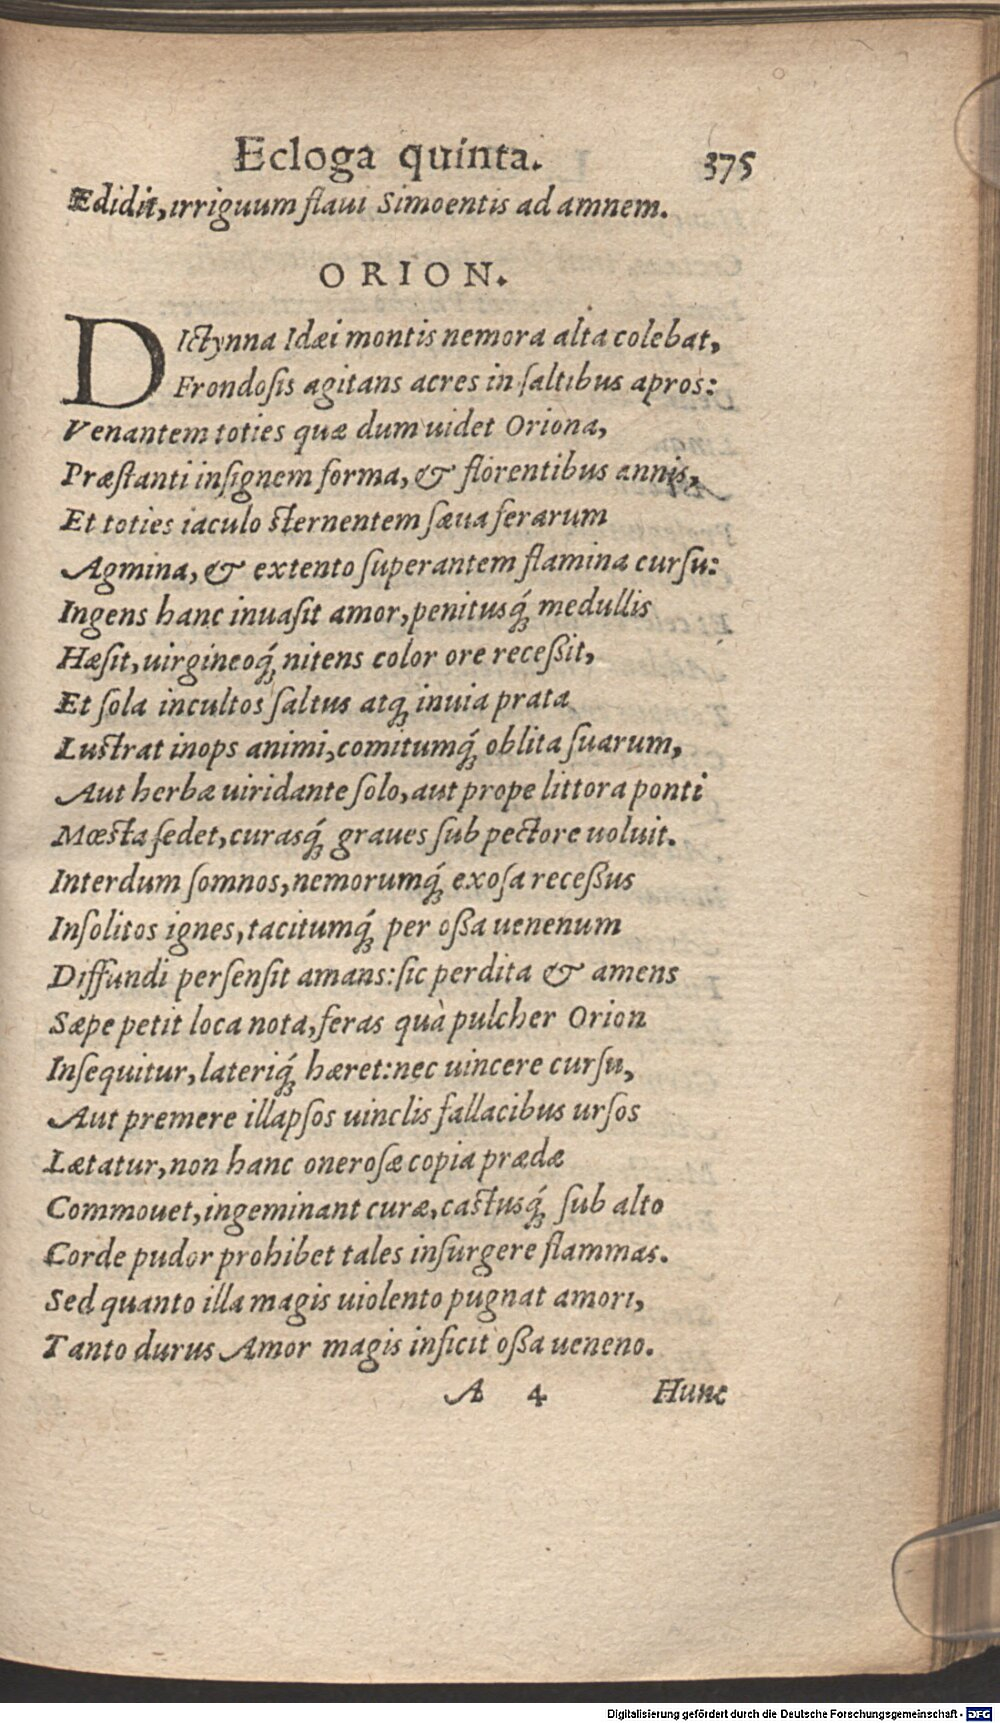 Ecloga quinta. 375
Edidit, irriguum flaui Simoentis ad amnem.
ORION.
DIctynna Idæi montis nemora alta colebat,
Frondoſis agitans acres in ſaltibus apros:
Venantem toties quæ dum uidet Oriona,
Præſtanti inſignem forma, & florentibus annis,
Et toties iaculo ſternentem ſæua ferarum
Agmina, & extento ſuperantem flamina curſu:
Ingens hanc inuaſit amor, penitusq́; medullis
Hæſit, uirgineoq́; nitens color ore receßit,
Et ſola incultos ſaltus atq; inuia prata
Luſtrat inops animi, comitumq́; oblita ſuarum,
Aut herbæ uiridante ſolo, aut prope littora ponti
Mœſta ſedet, curasq́; graues ſub pectore uoluit.
Interdum ſomnos, nemorumq́; exoſa receßus
Inſolitos ignes, tacitumq́; per oßa uenenum
Diffundi perſenſit amans: ſic perdita & amens
Sæpe petit loca nota, feras quà pulcher Orion
Inſequitur, lateriq́; hæret: nec uincere curſu,
Aut premere illapſos uinclis fallacibus urſos
Lætatur, non hanc oneroſæ copia prædæ
Commouet, ingeminant curæ, caſtusq́; ſub alto
Corde pudor prohibet tales inſurgere flammas.
Sed quanto illa magis uiolento pugnat amori,
Tanto durus Amor magis inficit oßa ueneno.
A 4 Hunc
Digitalisierung gefördert durch die Deutsche Forschungsgemeinschaft - DFG